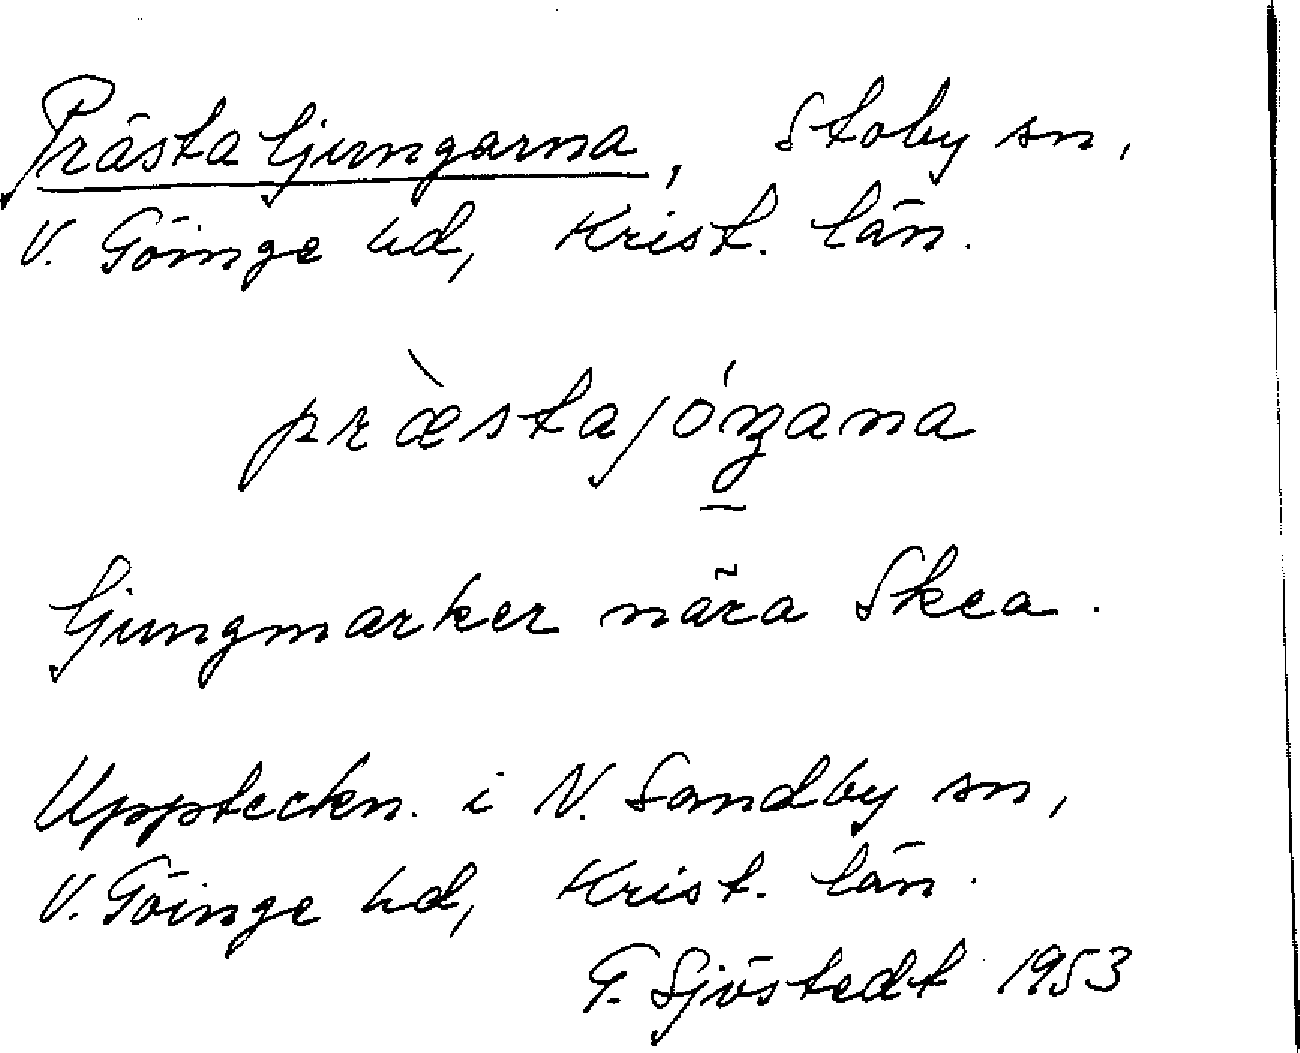 Prästaljungarna, Stoby sn,
V. Göinge hd, Krist. län.
præ̀stajóŋana
Ljungmarker nära Skea.
Uppteckn. i N. Sandby sn,
V. Göinge hd, Krist. län.
G. Sjöstedt 1953